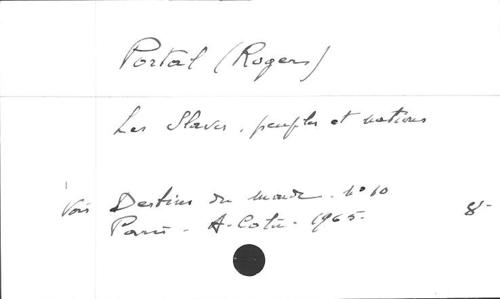 Portal (Rogers)
Les Slaves, peuples et nations
Voir Destins du monde. N° 10
Paris - A. Colin - 1965- 8-